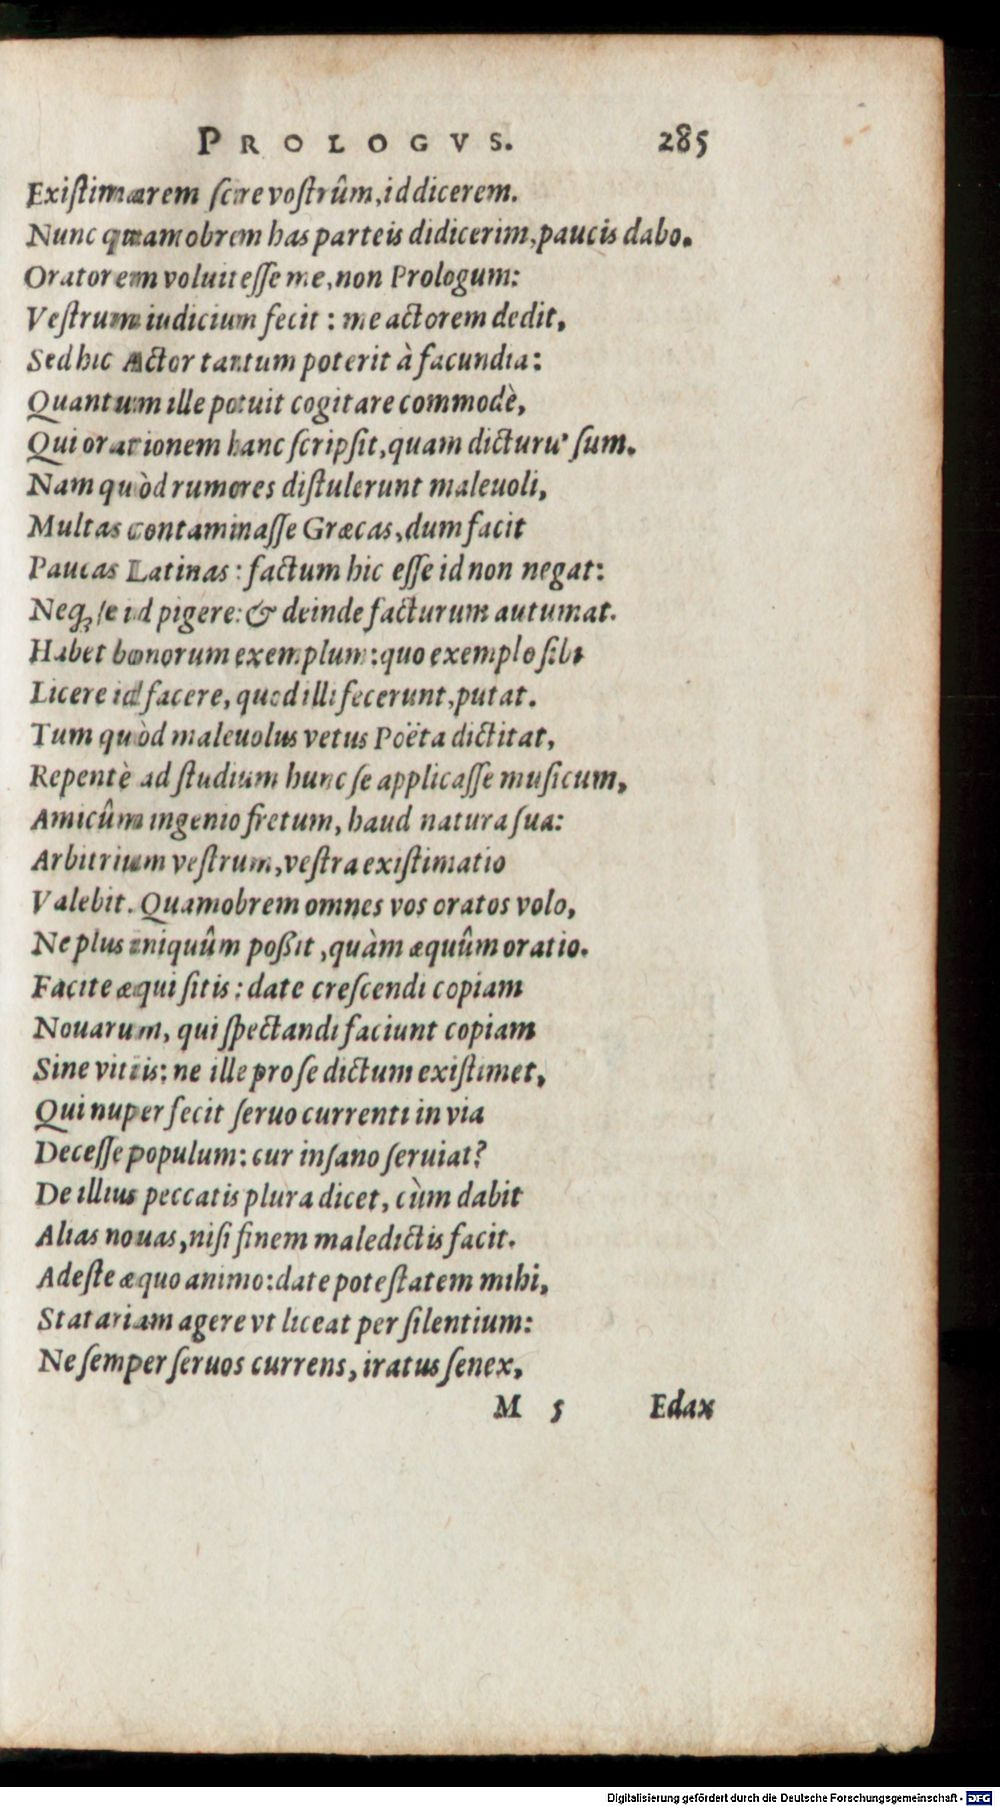 PROLOGVS. 285
Exiſtimarem ſcire voſtrûm, id dicerem.
Nunc quamobrem has parteis didicerim, paucis dabo.
Oratorem voluit eſſe me, non Prologum:
Veſtrum iudicium fecit : me actorem dedit,
Sed hic Actor tantum poterit à facundia:
Quantum ille potuit cogitare commodè,
Qui orationem hanc ſcripſit, quam dicturu' ſum.
Nam quòd rumores diſtulerunt maleuoli,
Multas contaminaſſe Græcas, dum facit
Paucas Latinas : factum hic eſſe id non negat:
Neqꝫ ſe id pigere: & deinde facturum autumat.
Habet bonorum exemplum: quo exemplo ſibi
Licere id facere, quod illi fecerunt, putat.
Tum quòd maleuolus vetus Poëta dictitat,
Repentè ad ſtudium hunc ſe applicaſſe muſicum,
Amicûm ingenio fretum, haud natura ſua:
Arbitrium veſtrum, veſtra exiſtimatio
Valebit. Quamobrem omnes vos oratos volo,
Ne plus iniquûm poßit, quàm æquûm oratio.
Facite æqui ſitis : date creſcendi copiam
Nouarum, qui ſpectandi faciunt copiam
Sine vitiis: ne ille pro ſe dictum exiſtimet,
Qui nuper fecit ſeruo currenti in via
Deceſſe populum: cur inſano ſeruiat?
De illius peccatis plura dicet, cùm dabit
Alias nouas, niſi finem maledictis facit.
Adeſte æquo animo: date poteſtatem mihi,
Statariam agere vt liceat per ſilentium:
Ne ſemper ſeruos currens, iratus ſenex,
M 5 Edax
Digitalisierung gefördert durch die Deutsche Forschungsgemeinschaft - DFG